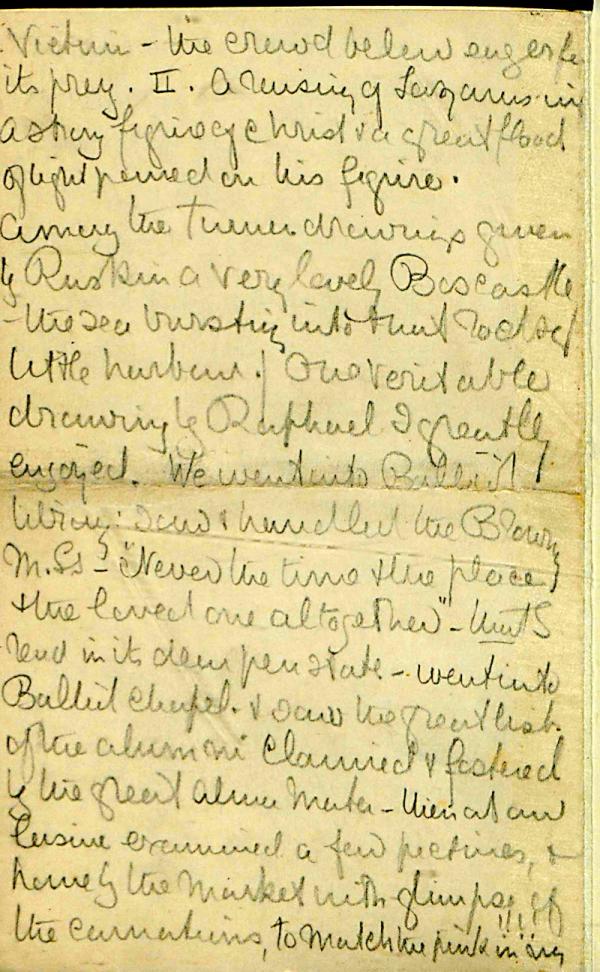 Victim - the crowd below eager for
its prey. II. A raising of Lazarus in
a strong figure of Christ & a great flood
of light poured on his figure.
Among the Turner drawings given
by Ruskin a very lovely Boscastle
- the sea bursting into that
little harbour! One veritable
drawing by Raphael I greatly
enjoyed. We went into Balliol
library: saw & handled the Browning
M.SS - "Never the time & the place
& the loved one altogether" -
read in its dear pen state - went into
Balliol Chapel. & saw the great list
of the alumni claimed & fostered
by the great Alma Mater - then at our
leisure examined a few pictures, &
home by the Market with glimpse of
the carnations, to match the pink in my